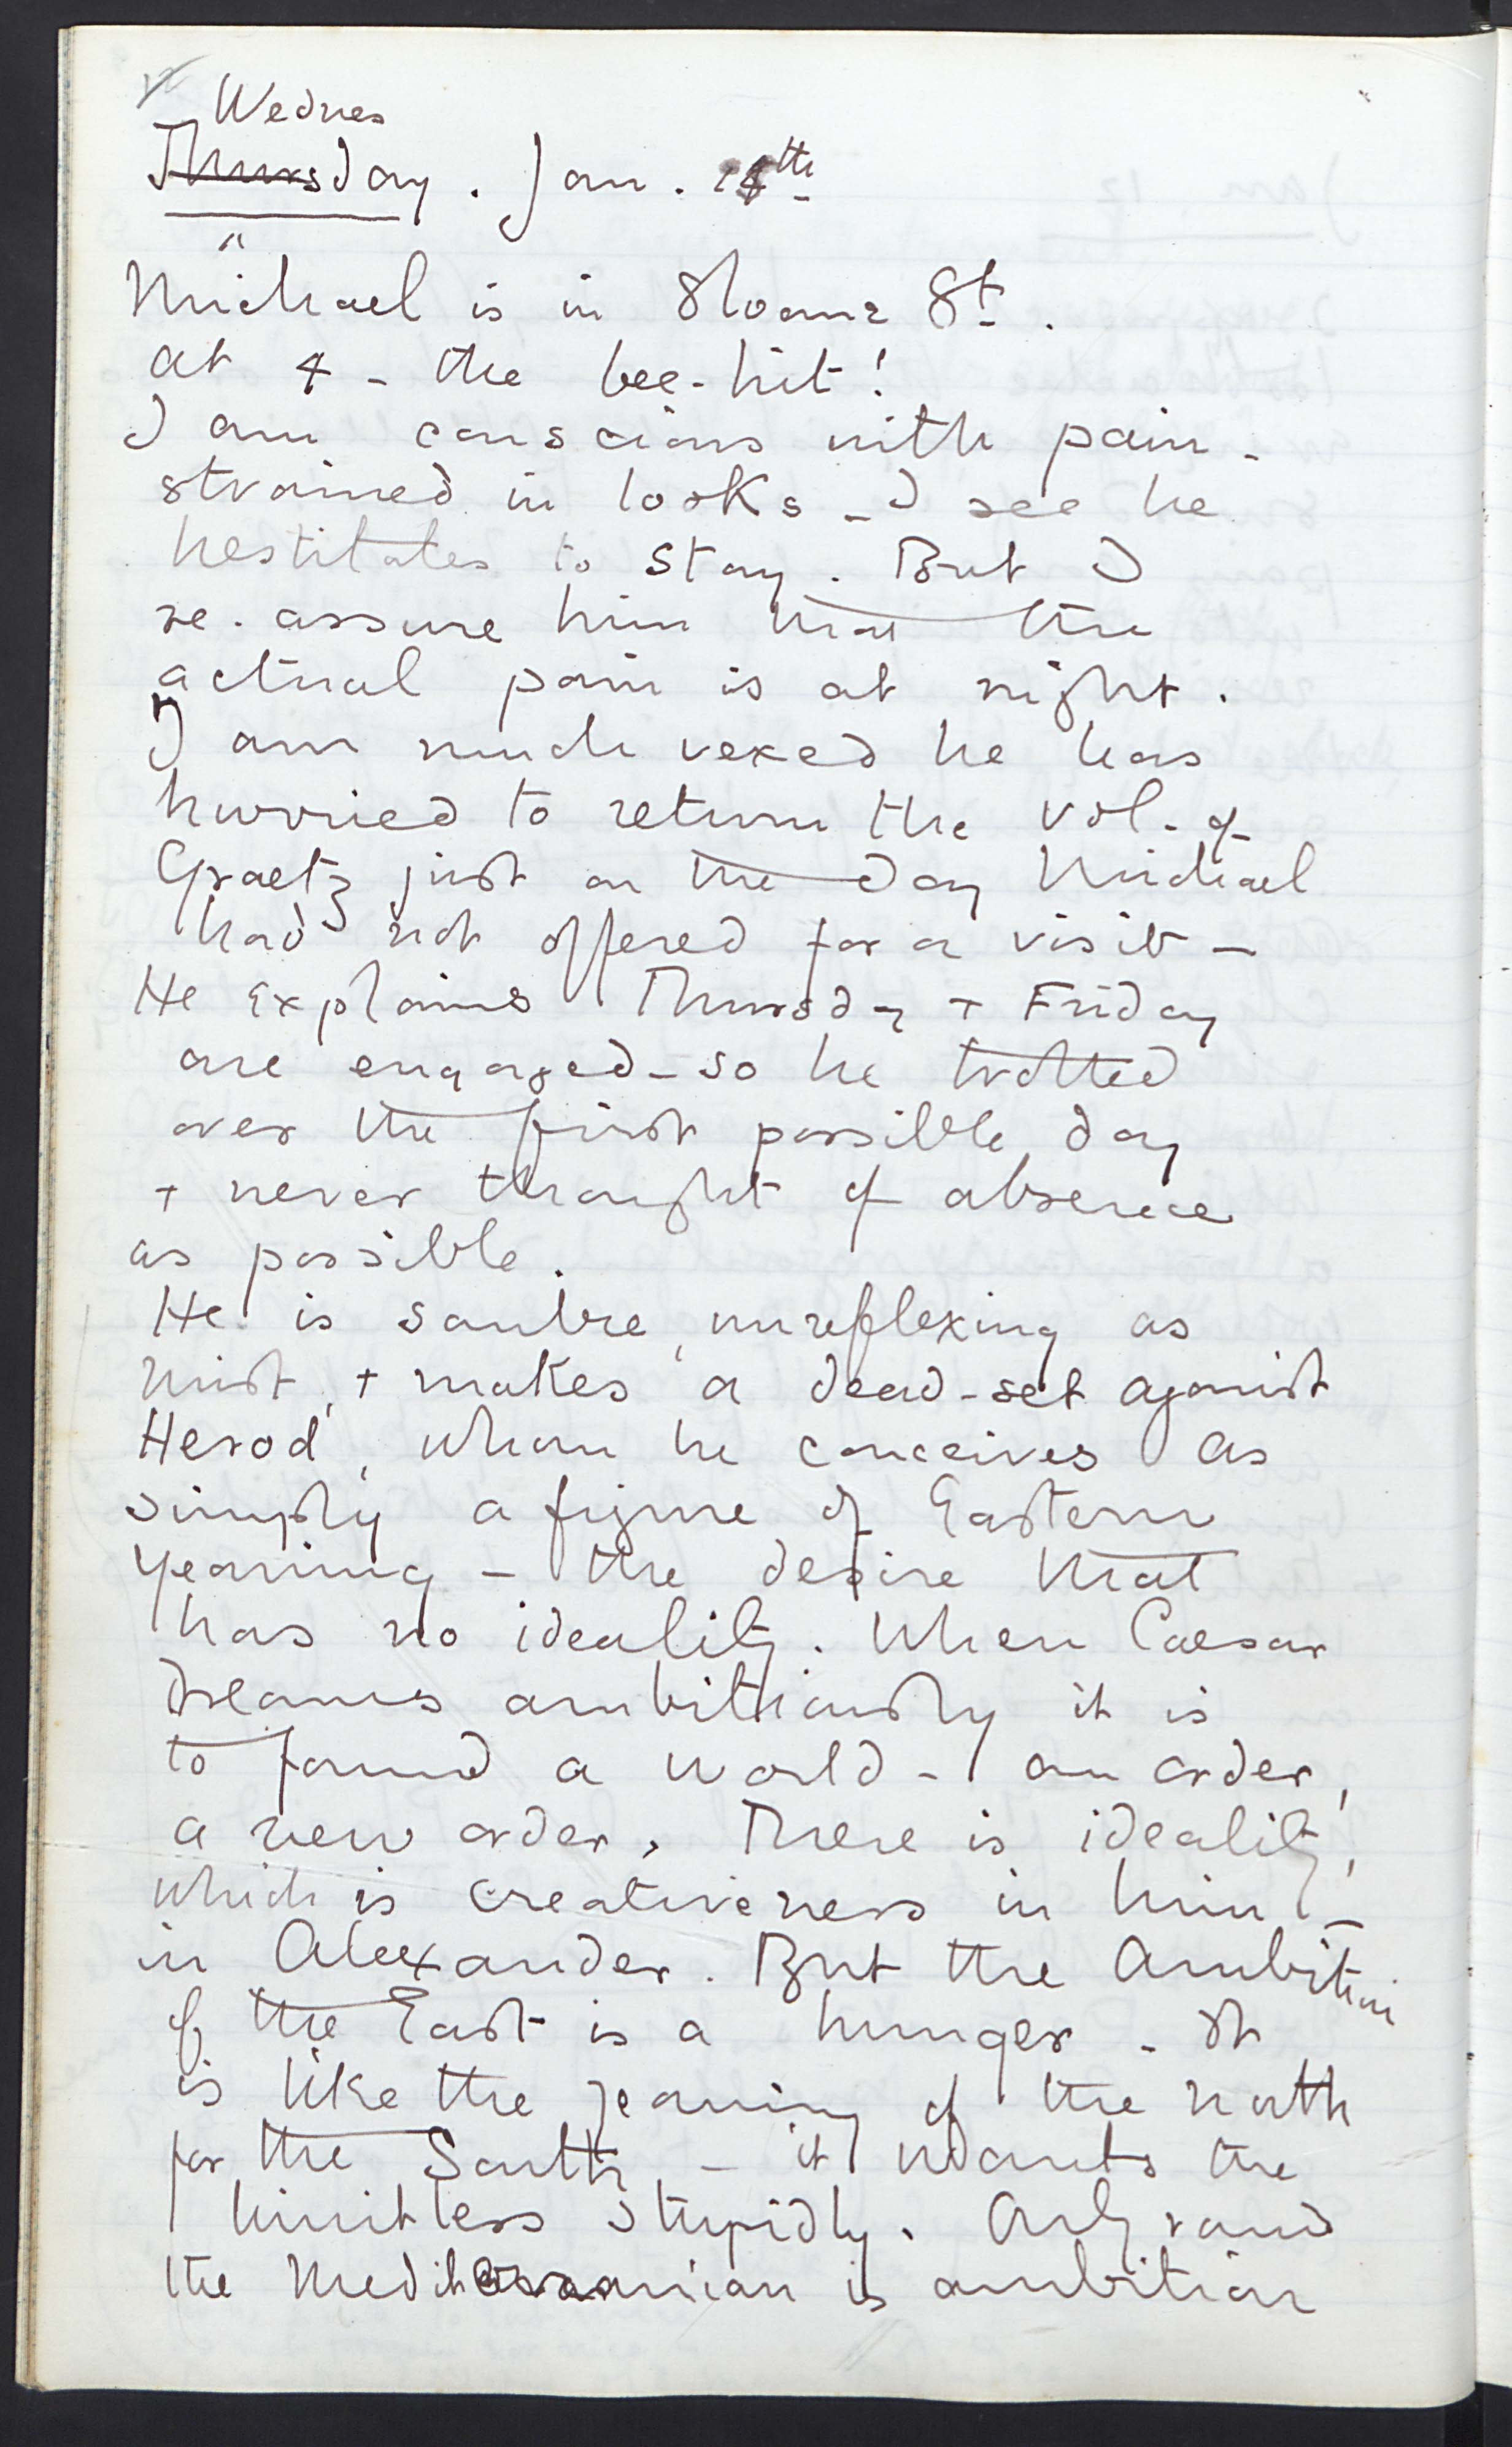 Wednes
Thursday. Jan. 14th
Michael is in Sloane St.
at 4 - the bee-hit!
I am conscious with pain -
strained in looks - I see he
hestitates to stay. But I
re-assure him that the
actual pain is at night.
I am much vexed he has
hurried to return the vol. of
Graetz just on the day Michael
had not offered for a visit -
He explains Thursday + Friday
are engaged - so he trotted
over the first possible day
+ never thought of absence
as possible.
He is sombre, unreflexing as
mist, + makes a dead-set against
Herod, whom he conceives as
simply a figure of Eastern
yearning - the desire that
has no ideality. When Caesar
dreams ambitiously it is
to found a world - an order,
a new order. There is ideality,
which is creativeness in him -
in Alexander. But the Ambition
of the East is a hunger - It
is like the yearning of the north
for the South - it wants the
limitless stupidly. Only round
the Mediterranian is ambition